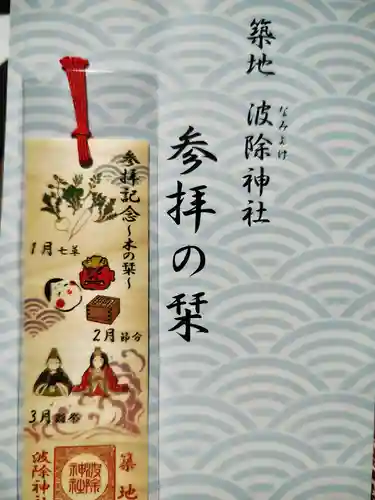 築地 波除神社
なみよけ
参拝の栞
参拝記念〜木の栞〜
1月 七草
2月 節分
3月 雛祭
築地
波除神社
波除神社